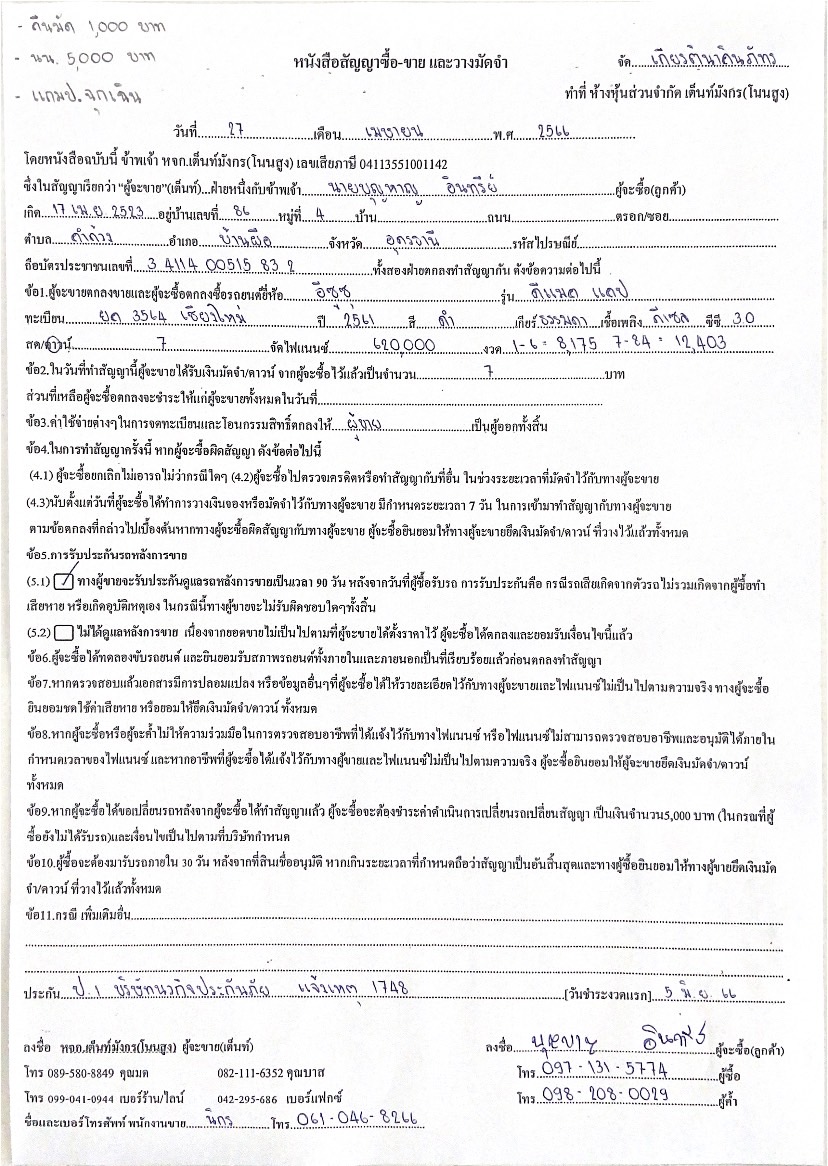 - คืนมัด 1,000 บาท
- นน. 5,000 บาท
- แถมป. ฉุกเฉิน
หนังสือสัญญาซื้อ-ขาย และวางมัดจำ
จัด เกียรตินาคินภัทร
ทำที่ ห้างหุ้นส่วนจำกัด เต็นท์มังกร(โนนสูง)
วันที่ 27 เดือน เมษายน พ.ศ 2566
โดยหนังสือฉบับนี้ ข้าพเจ้า หจก.เต็นท์มังกร(โนนสูง) เลขเสียภาษี 04113551001142
ซึ่งในสัญญาเรียกว่า "ผู้จะขาย"(เต็นท์)...ฝ่ายหนึ่งกับข้าพเจ้า นายบุญหาญ อินทรีย์ ผู้จะซื้อ(ลูกค้า)
เกิด 17 เม.ย 2523 อยู่บ้านเลขที่ 86 หมู่ที่ 4 บ้าน ถนน ตรอก/ซอย
ตำบล คำด้วง อำเภอ บ้านผือ จังหวัด อุดรธานี รหัสไปรษณีย์
ถือบัตรประชาชนเลขที่ 3 4114 00515 83 2 ทั้งสองฝ่ายตกลงทำสัญญากัน ดังข้อความต่อไปนี้
ข้อ1.ผู้จะขายตกลงขายและผู้จะซื้อตกลงซื้อรถยนต์ยี่ห้อ อีซูซุ รุ่น ดีแมค แคป
ทะเบียน ยด 3564 เชียงใหม่ ปี 2561 สี ดำ เกียร์ ธรรมดา เชื้อเพลิง ดีเซล ซีซี 3.0
สด/ดาวน์ 7 จัดไฟแนนซ์ 620,000 งวด 1-6 = 8,175 7-84 = 12,403
ข้อ2.ในวันที่ทำสัญญานี้ผู้จะขายได้รับเงินมัดจำ/ดาวน์ จากผู้จะซื้อไว้แล้วเป็นจำนวน 7 บาท
ส่วนที่เหลือผู้จะซื้อตกลงจะชำระให้แก่ผู้จะขายทั้งหมดในวันที่
ข้อ3.ค่าใช้จ่ายต่างๆในการจดทะเบียนและโอนกรรมสิทธิ์ตกลงให้ ผู้ขาย เป็นผู้ออกทั้งสิ้น
ข้อ4.ในการทำสัญญาครั้งนี้ หากผู้จะซื้อผิดสัญญา ดังข้อต่อไปนี้
(4.1) ผู้จะซื้อยกเลิกไม่เอารถไม่ว่ากรณีใดๆ (4.2)ผู้จะซื้อไปตรวจเครดิตหรือทำสัญญากับที่อื่น ในช่วงระยะเวลาที่มัดจำไว้กับทางผู้จะขาย
(4.3)นับตั้งแต่วันที่ผู้จะซื้อได้ทำการวางเงินจองหรือมัดจำไว้กับทางผู้จะขาย มีกำหนดระยะเวลา 7 วัน ในการเข้ามาทำสัญญากับทางผู้จะขาย
ตามข้อตกลงที่กล่าวไปเบื้องต้นหากทางผู้จะซื้อผิดสัญญากับทางผู้จะขาย ผู้จะซื้อยินยอมให้ทางผู้จะขายยึดเงินมัดจำ/ดาวน์ ที่วางไว้แล้วทั้งหมด
ข้อ5.การรับประกันรถหลังการขาย
(5.1) ทางผู้ขายจะรับประกันดูแลรถหลังการขายเป็นเวลา 90 วัน หลังจากวันที่ผู้ซื้อรับรถ การรับประกันคือ กรณีรถเสียเกิดจากตัวรถไม่รวมเกิดจากผู้ซื้อทำ
เสียหาย หรือเกิดอุบัติเหตุเอง ในกรณีนี้ทางผู้ขายจะไม่รับผิดชอบใดๆทั้งสิ้น
(5.2) ไม่ได้ดูแลหลังการขาย เนื่องจากยอดขายไม่เป็นไปตามที่ผู้จะขายได้ตั้งราคาไว้ ผู้จะซื้อได้ตกลงและยอมรับเงื่อนไขนี้แล้ว
ข้อ6.ผู้จะซื้อได้ทดลองขับรถยนต์ และยินยอมรับสภาพรถยนต์ทั้งภายในและภายนอกเป็นที่เรียบร้อยแล้วก่อนตกลงทำสัญญา
ข้อ7.หากตรวจสอบแล้วเอกสารมีการปลอมแปลง หรือข้อมูลอื่นๆที่ผู้จะซื้อได้ให้รายละเอียดไว้กับทางผู้จะขายและไฟแนนซ์ไม่เป็นไปตามความจริง ทางผู้จะซื้อ
ยินยอมชดใช้ค่าเสียหาย หรือยอมให้ยึดเงินมัดจำ/ดาวน์ ทั้งหมด
ข้อ8.หากผู้จะซื้อหรือผู้จะค้ำไม่ให้ความร่วมมือในการตรวจสอบอาชีพที่ได้แจ้งไว้กับทางไฟแนนซ์ หรือไฟแนนซ์ไม่สามารถตรวจสอบอาชีพและอนุมัติได้ภายใน
กำหนดเวลาของไฟแนนซ์ และหากอาชีพที่ผู้จะซื้อได้แจ้งไว้กับทางผู้ขายและไฟแนนซ์ไม่เป็นไปตามความจริง ผู้จะซื้อยินยอมให้ผู้จะขายยึดเงินมัดจำ/ดาวน์
ทั้งหมด
ข้อ9.หากผู้จะซื้อได้ขอเปลี่ยนรถหลังจากผู้จะซื้อได้ทำสัญญาแล้ว ผู้จะซื้อจะต้องชำระค่าดำเนินการเปลี่ยนรถเปลี่ยนสัญญา เป็นเงินจำนวน5,000 บาท (ในกรณที่ผู้
ซื้อยังไม่ได้รับรถ)และเงื่อนไขเป็นไปตามที่บริษัทกำหนด
ข้อ10.ผู้ซื้อจะต้องมารับรถภายใน 30 วัน หลังจากที่สินเชื่ออนุมัติ หากเกินระยะเวลาที่กำหนดถือว่าสัญญาเป็นอันสิ้นสุดและทางผู้ซื้อยินยอมให้ทางผู้ขายยึดเงินมัด
จำ/ดาวน์ ที่วางไว้แล้วทั้งหมด
ข้อ11.กรณี เพิ่มเติมอื่น
ประกัน ป.1 บริษัทนวกิจประกันภัย แจ้งเหตุ 1748 [วันชำระงวดแรก] 5 มิ.ย. 66
ลงชื่อ หจก.เต็นท์มังกร(โนนสูง) ผู้จะขาย(เต็นท์) ลงชื่อ บุญหาญ อินทรีย์ ผู้จะซื้อ(ลูกค้า)
โทร 089-580-8849 คุณมด 082-111-6352 คุณบาส โทร 097-131-5774 ผู้ซื้อ
โทร 099-041-0944 เบอร์ร้าน/ไลน์ 042-295-686 เบอร์แฟกซ์ โทร 098-208-0029 ผู้ค้ำ
ชื่อและเบอร์โทรศัพท์ พนักงานขาย นิกร โทร 061-046-8266